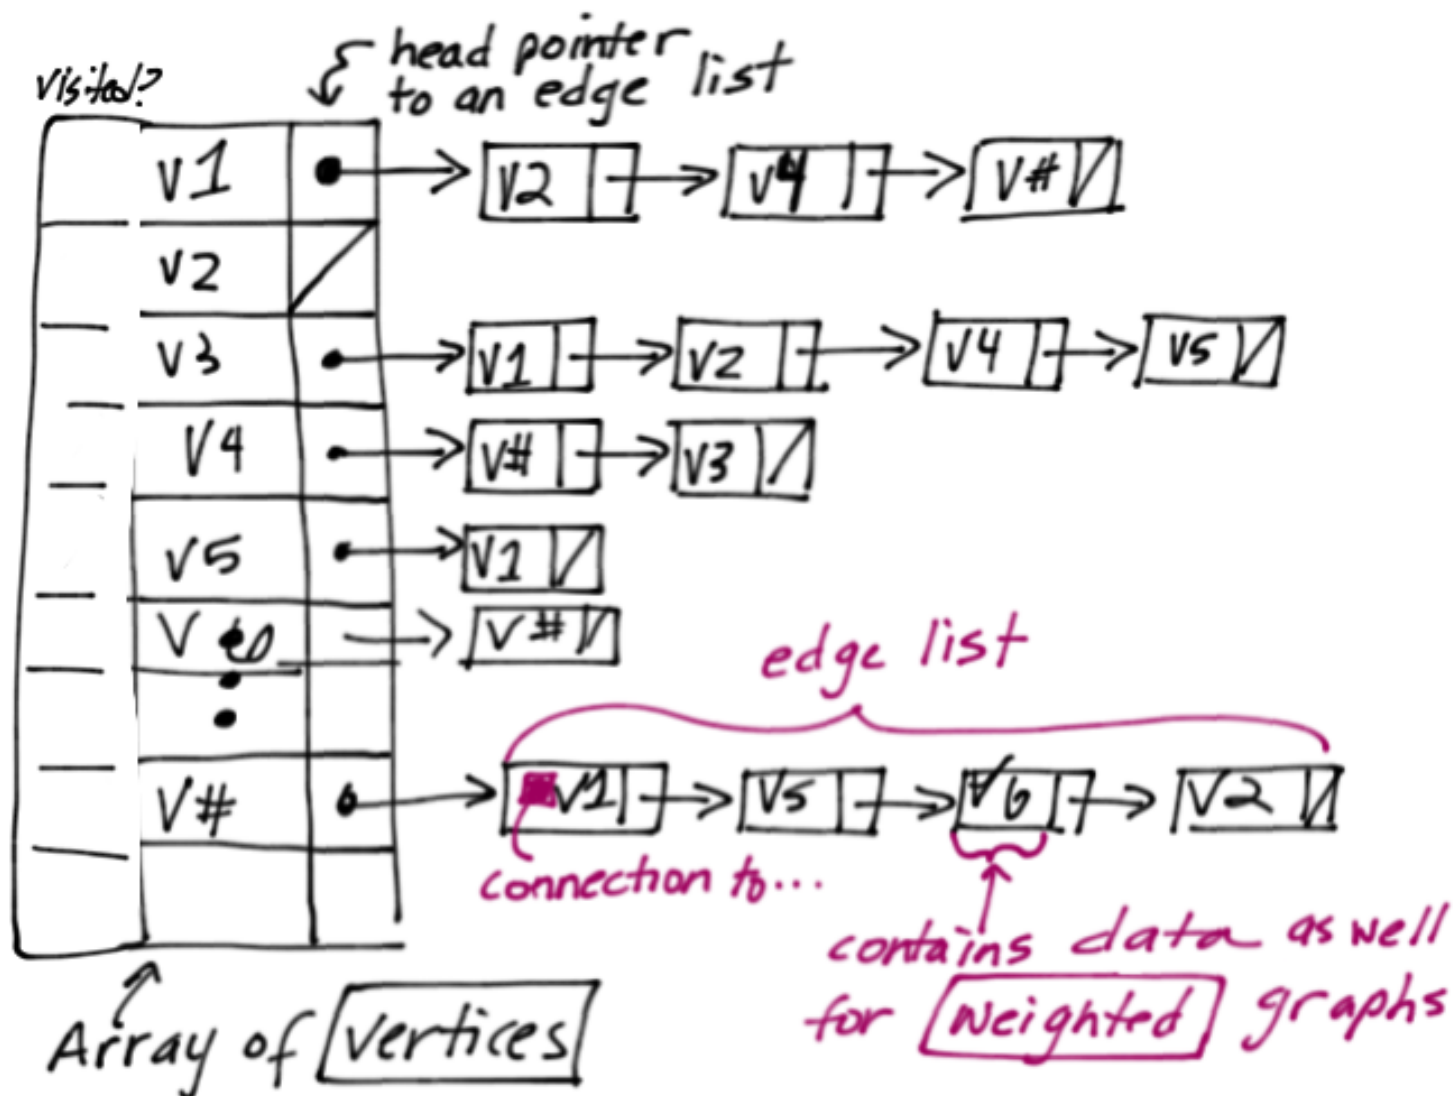 visited?
head pointer
to an edge list
v1 v2 v4 v#
v2
v3 v1 v2 v4 v5
v4 v# v3
v5 v1
v v#
edge list
v# v1 v5 v6 v2
connection to...
contains data as well
for weighted graphs
Array of vertices